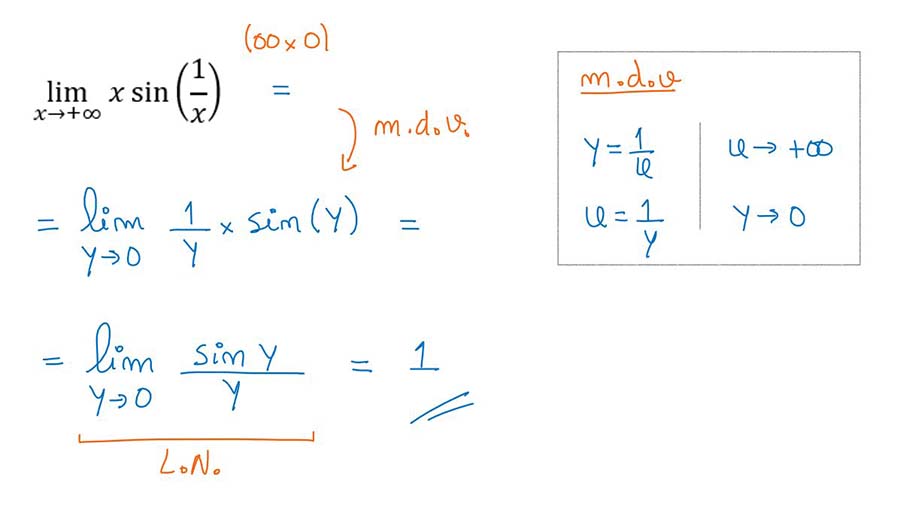 (∞ × 0)
lim x→+∞ x sin(1/x) =
m.d.v.
= lim y→0 1/y × sin(y) =
= lim y→0 sin y / y = 1
L.N.
m.d.v
y = 1/x | x → +∞
x = 1/y | y → 0